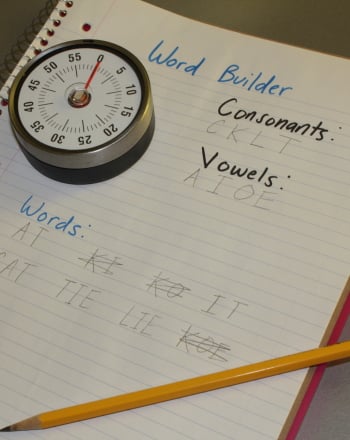 Word Builder
Consonants:
C K L T
Vowels:
A I O E
Words:
AT KI KO IT
CAT TIE LIE KOE
0 5 10 15 20 25 30 35 40 45 50 55